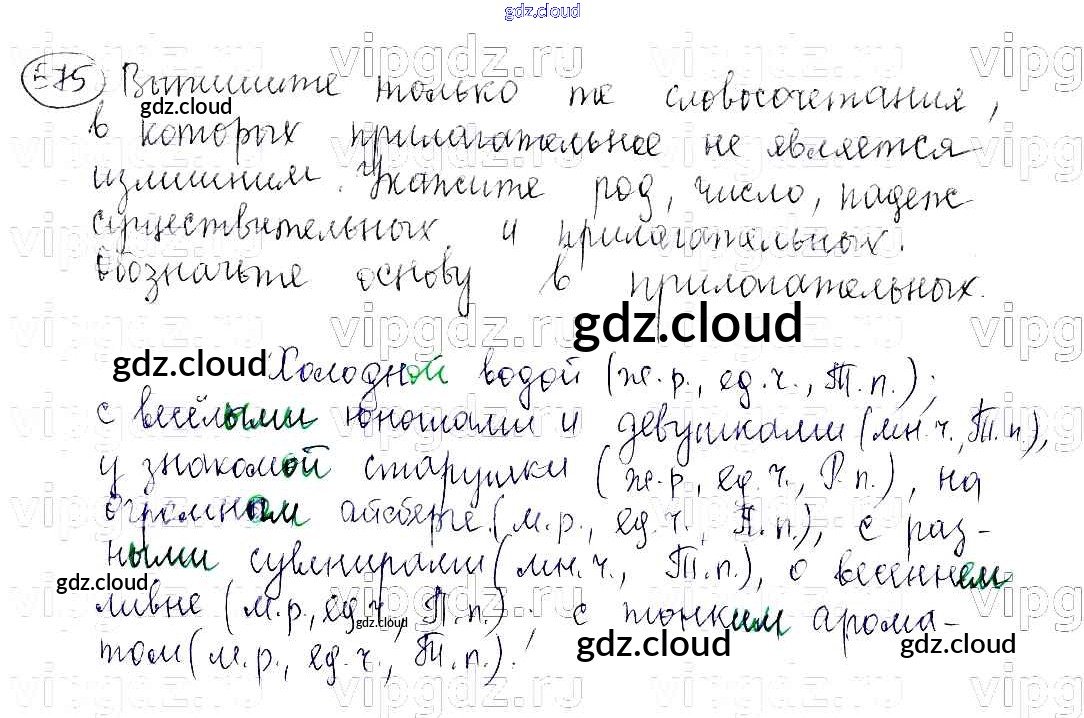 gdz.cloud
575 Выпишите только те словосочетания,
gdz.cloud
в которых прилагательное не является
излишним. Укажите род, число, падеж
существительных и прилагательных.
Обозначьте основу в прилагательных.
vipgdz.ru
gdz.cloud
gdz.cloud
Холодной водой (ж.р., ед.ч., Т.п.);
с весёлыми юношами и девушками (мн.ч., Т.п.),
у знакомой старушки (ж.р., ед.ч., Р.п.), на
огромном айсберге (м.р., ед.ч., П.п.), с раз-
ными сувенирами (мн.ч., Т.п.), о весеннем
gdz.cloud
ливне (м.р., ед.ч., П.п.), с тонким арома-
gdz.cloud
том (м.р., ед.ч., Т.п.).
gdz.cloud
gdz.cloud